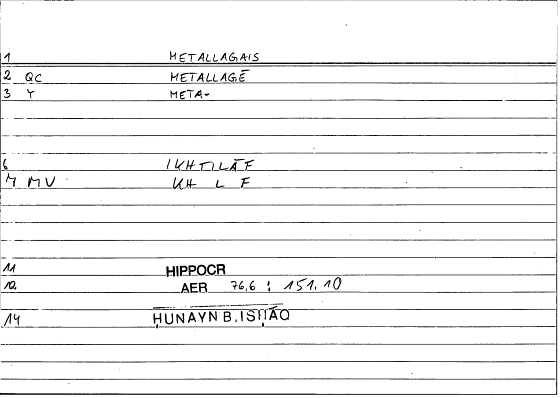 1 METALLAGAIS
2 QC METALLAGĒ
3 Y META-
6 IKHTILĀF
7 MV KH L F
11 HIPPOCR
12 AER 76,6 : 151,10
14 ḤUNAYN B. ISḤĀQ